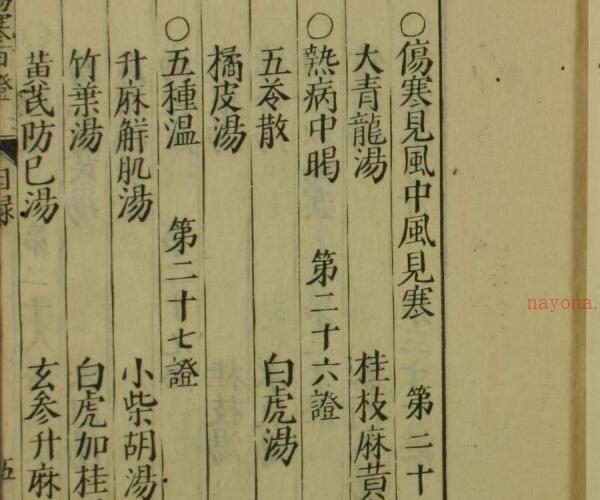 ○傷寒見風中風見寒 第二十
大青龍湯 桂枝麻黄
○熱病中暍 第二十六證
五苓散 白虎湯
橘皮湯
○五種温 第二十七證
升麻解肌湯 小柴胡湯
竹葉湯 白虎加桂
黃芪防巳湯 玄參升麻
目録
五
nayona.